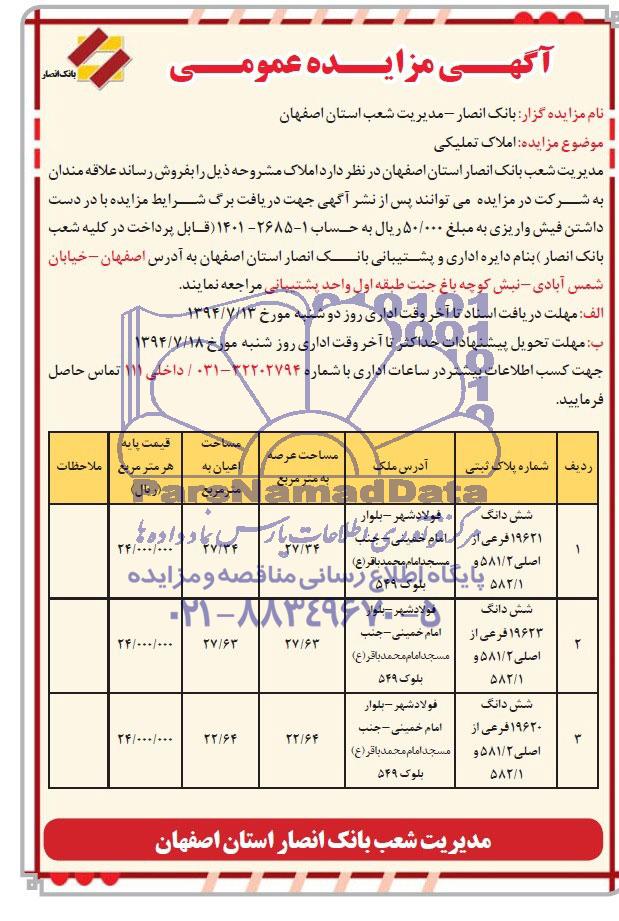 آگهی مزایده عمومی
بانک انصار
نام مزایده گزار: بانک انصار – مدیریت شعب استان اصفهان
موضوع مزایده: املاک تملیکی
مدیریت شعب بانک انصار استان اصفهان در نظر دارد املاک مشروحه ذیل را بفروش رساند علاقه مندان
به شرکت در مزایده می توانند پس از نشر آگهی جهت دریافت برگ شرایط مزایده با در دست
داشتن فیش واریزی به مبلغ ۵۰/۰۰۰ ریال به حساب ۱-۲۶۸۵-۱۴۰۱ (قابل پرداخت در کلیه شعب
بانک انصار) بنام دایره اداری و پشتیبانی بانک انصار استان اصفهان به آدرس اصفهان – خیابان
شمس آبادی – نبش کوچه باغ جنت طبقه اول واحد پشتیبانی مراجعه نمایند.
الف: مهلت دریافت اسناد تا آخر وقت اداری روز دو شنبه مورخ ۱۳۹۴/۷/۱۳
ب: مهلت تحویل پیشنهادات حداکثر تا آخر وقت اداری روز شنبه مورخ ۱۳۹۴/۷/۱۸
جهت کسب اطلاعات بیشتر در ساعات اداری با شماره ۳۲۲۰۲۷۹۴-۰۳۱ / داخلی ۱۱۱ تماس حاصل
فرمایید.
ردیف | شماره پلاک ثبتی | آدرس ملک | مساحت عرصه به متر مربع | مساحت اعیان به مترمربع | قیمت پایه هر متر مربع (ریال) | ملاحظات
۱ | شش دانگ ۱۹۶۲۱ فرعی از اصلی ۵۸۱/۲ و ۵۸۲/۱ | فولادشهر – بلوار امام خمینی – جنب مسجد امام محمد باقر (ع) بلوک ۵۴۹ | ۲۷/۳۴ | ۲۷/۳۴ | ۲۴/۰۰۰/۰۰۰
۲ | شش دانگ ۱۹۶۲۳ فرعی از اصلی ۵۸۱/۲ و ۵۸۲/۱ | فولادشهر – بلوار امام خمینی – جنب مسجد امام محمد باقر (ع) بلوک ۵۴۹ | ۲۷/۶۳ | ۲۷/۶۳ | ۲۴/۰۰۰/۰۰۰
۳ | شش دانگ ۱۹۶۲۰ فرعی از اصلی ۵۸۱/۲ و ۵۸۲/۱ | فولادشهر – بلوار امام خمینی – جنب مسجد امام محمد باقر (ع) بلوک ۵۴۹ | ۲۲/۶۴ | ۲۲/۶۴ | ۲۴/۰۰۰/۰۰۰
ParsNamadData
مرکز فن آوری اطلاعات پارس نماد داده ها
پایگاه اطلاع رسانی مناقصه و مزایده
۰۲۱-۸۸۳۴۹۶۷۰-۵
مدیریت شعب بانک انصار استان اصفهان